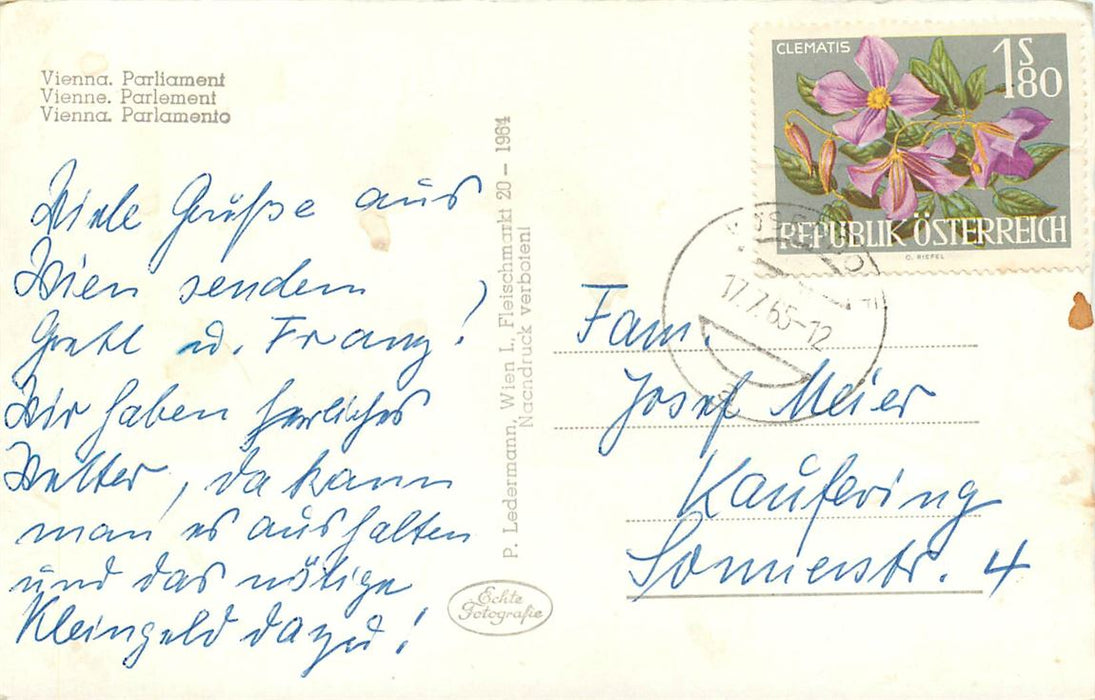 Vienna. Parliament
Vienne. Parlement
Vienna. Parlamento
Viele Grüße aus
Wien senden
Gretl u. Franz!
Wir haben herrliches
Wetter, da kann
man es aushalten
und das nötige
Kleingeld dazu!
P. Ledermann, Wien I., Fleischmarkt 20 – 1964
Nachdruck verboten!
Echte
Fotografie
CLEMATIS
1S80
REPUBLIK ÖSTERREICH
17.7.65-12
Fam.
Josef Meier
Kaufering
Sonnenstr. 4